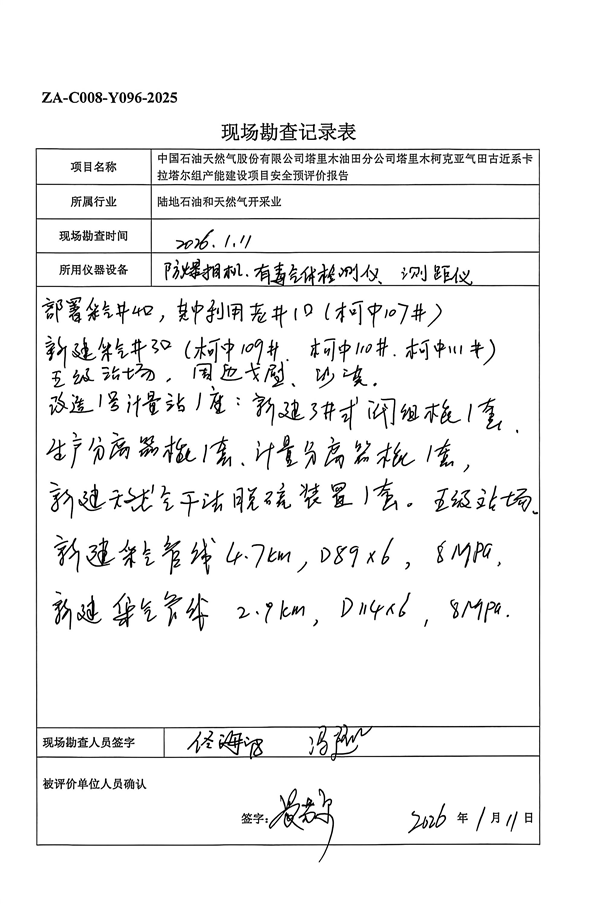 ZA-C008-Y096-2025
现场勘查记录表
项目名称
中国石油天然气股份有限公司塔里木油田分公司塔里木柯克亚气田古近系卡
拉塔尔组产能建设项目安全预评价报告
所属行业
陆地石油和天然气开采业
现场勘查时间
2026.1.11
所用仪器设备
防爆相机、有毒气体检测仪、测距仪
部署采气井4口，其中利用老井1口（柯中107井）
新建采气井3口（柯中109井、柯中110井、柯中111井）
五级站场，周边戈壁、沙漠。
改造1号计量站1座：新建3井式阀组橇1套、
生产分离器橇1套、计量分离器橇1套，
新建天然气干法脱硫装置1套。五级站场。
新建采气管线4.7km，D89×6，8MPa，
新建集气管线 2.9km，D114×6，8MPa.
现场勘查人员签字
被评价单位人员确认
签字：
2026 年 1 月 11 日